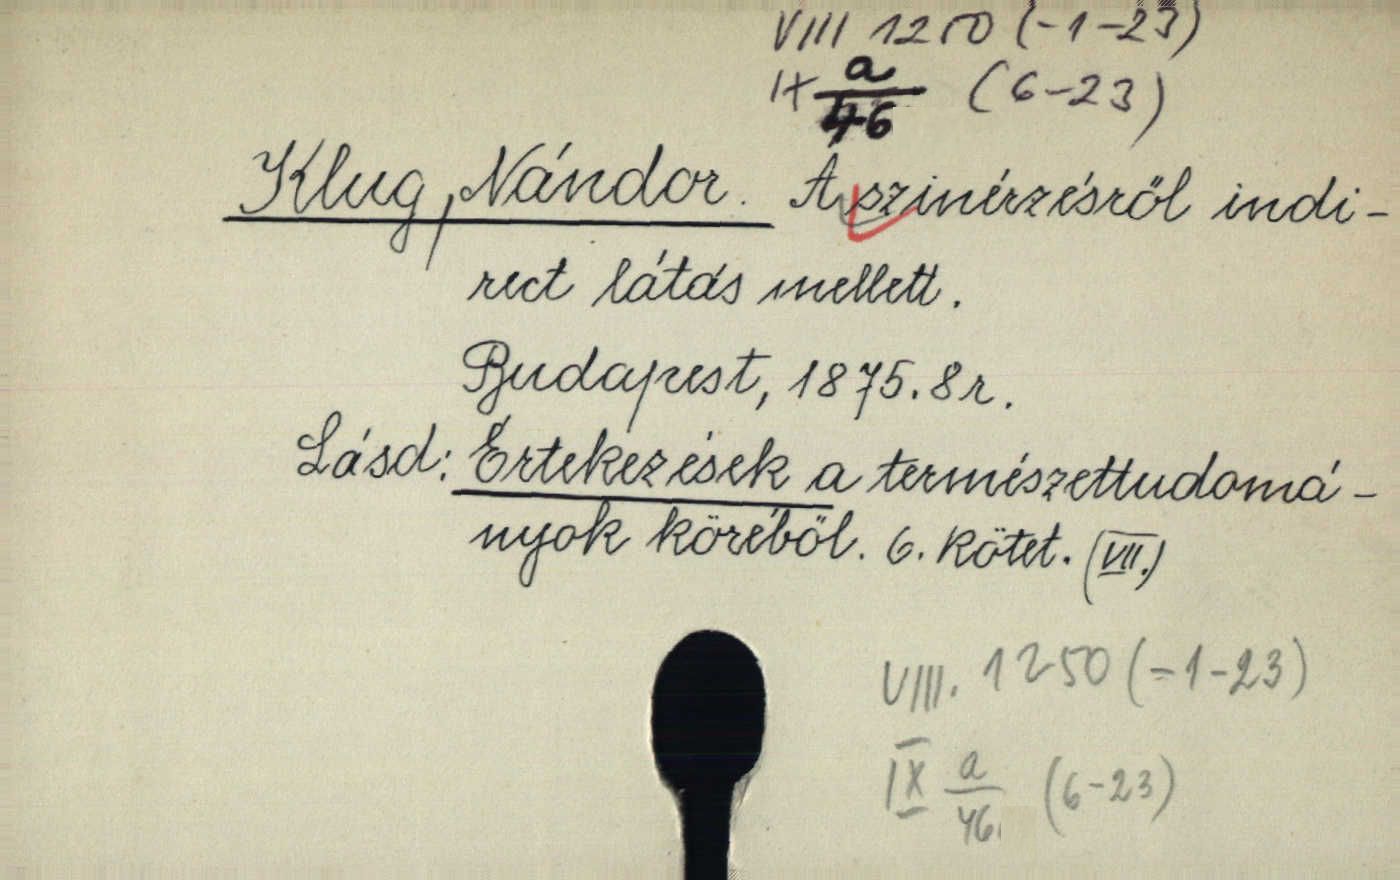 VIII 1250 (-1-23)
IX a/46 (6-23)
Klug, Nándor. A szinérzésről indi-
rect látás mellett.
Budapest, 1875. 8r.
Lásd: Értekezések a természettudomá-
nyok köréből. 6. kötet. (VII.)
VIII. 1250 (-1-23)
IX a/46. (6-23)